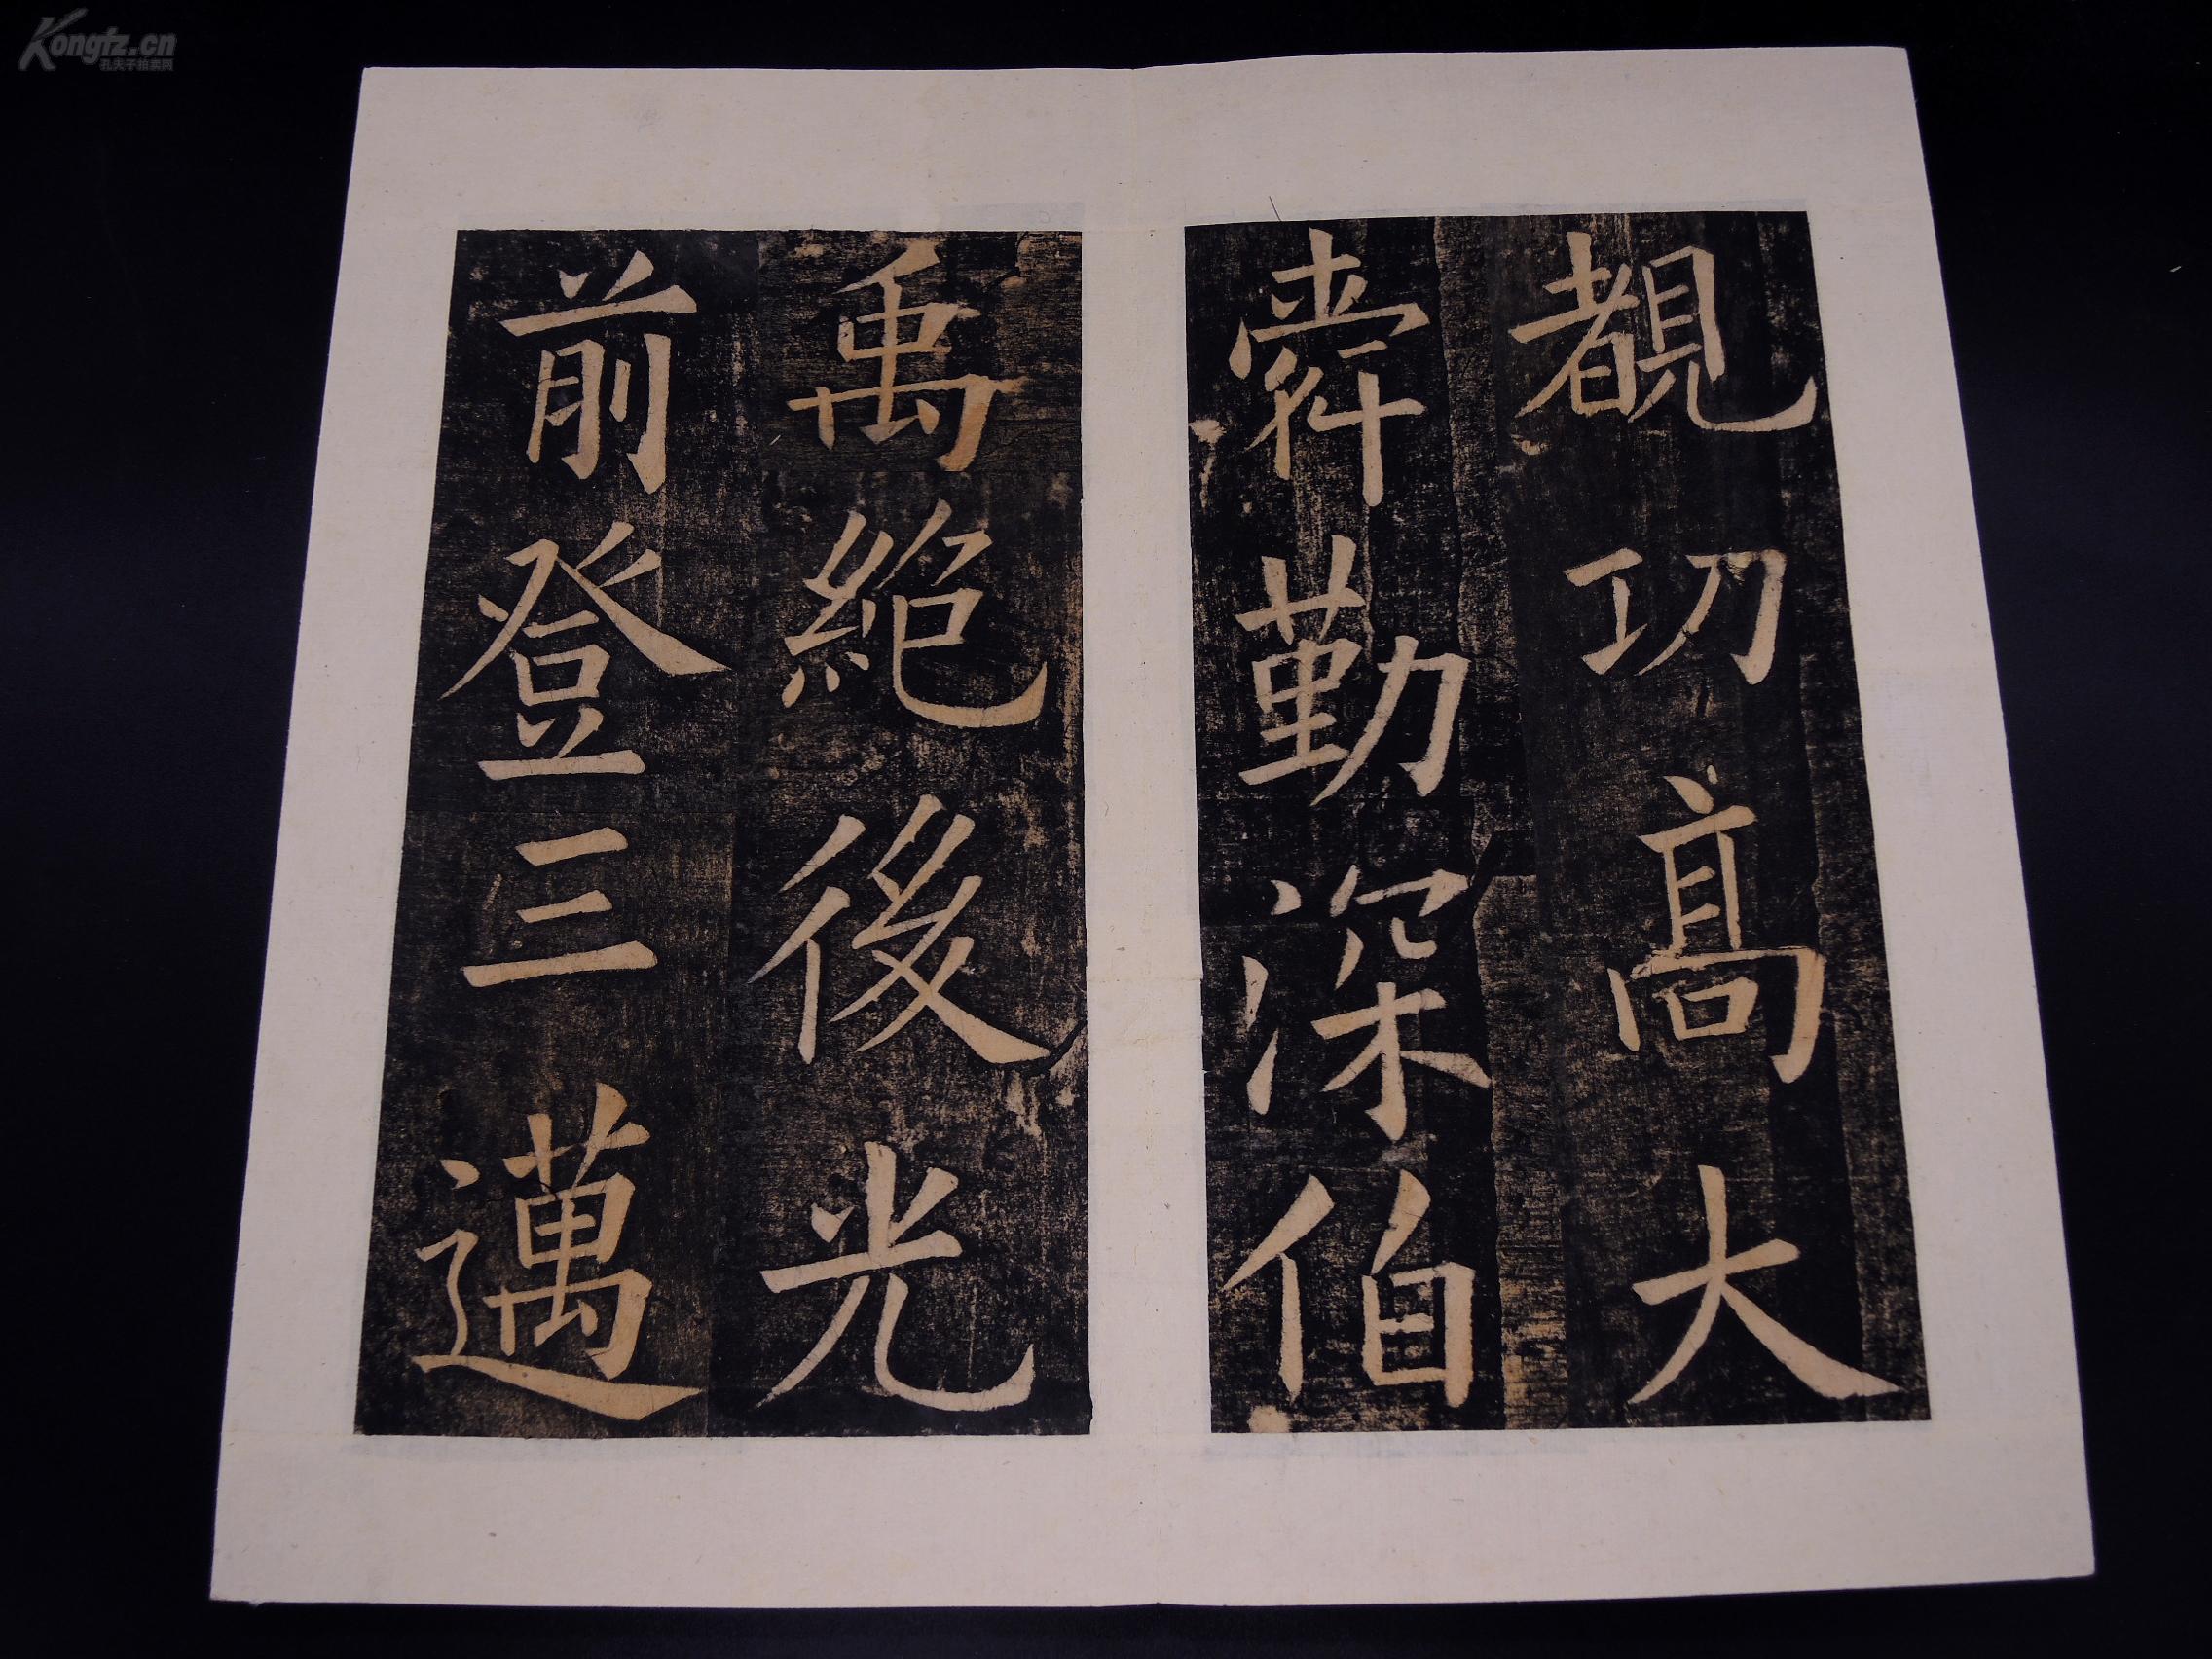 覩功高大
舜勤深伯
禹絶後光
前登三邁
Kongfz.cn
孔夫子拍卖网